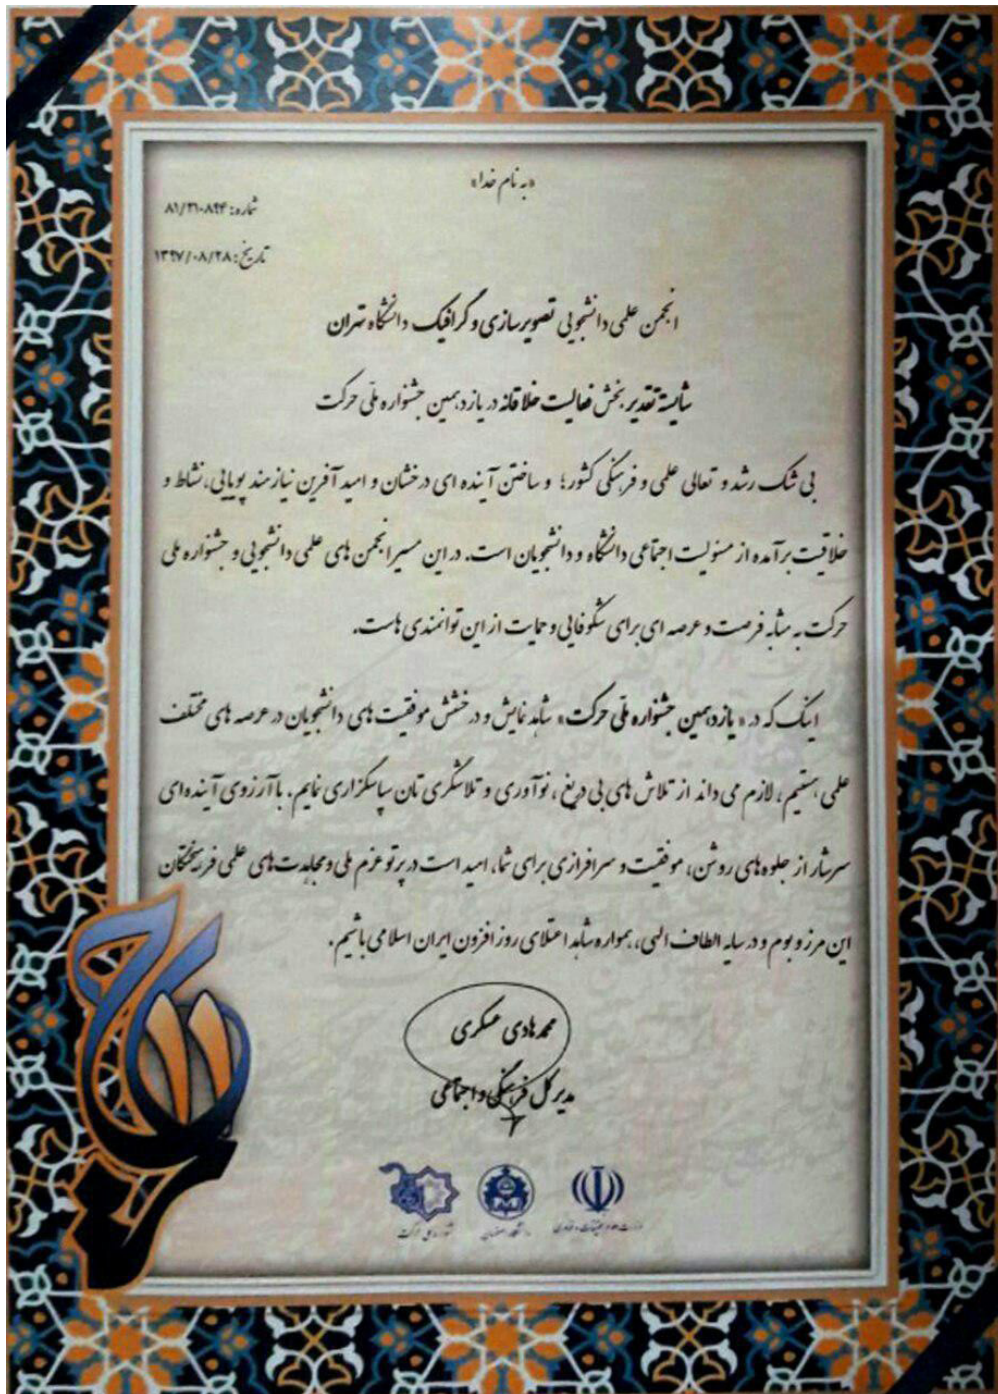 «به نام خدا»
شماره: ۸۱/۳۱۰۸۹۴
تاریخ: ۱۳۹۷/۰۸/۲۸
انجمن علمی دانشجویی تصویرسازی و گرافیک دانشگاه تهران
شایسته تقدیر بخش فعالیت خلاقانه در یازدهمین جشنواره ملّی حرکت
بی شک رشد و تعالی علمی و فرهنگی کشور؛ و ساختن آینده ای درخشان و امید آفرین نیازمند پویایی، نشاط و
خلاقیت برآمده از مسئولیت اجتماعی دانشگاه و دانشجویان است. در این مسیر انجمن های علمی دانشجویی و جشنواره ملی
حرکت به مثابه فرصت و عرصه ای برای شکوفایی و حمایت از این توانمندی هاست.
اینک که در «یازدهمین جشنواره ملّی حرکت» شاهد نمایش و درخشش موفقیت های دانشجویان در عرصه های مختلف
علمی هستیم، لازم می داند از تلاش های بی دریغ، نوآوری و تلاشگری تان سپاسگزاری نمایم. با آرزوی آینده ای
سرشار از جلوه های روشن، موفقیت و سرافرازی برای شما، امید است در پرتو عزم ملی و مجاهدت های علمی فرهیختگان
این مرز و بوم و در سایه الطاف الهی، همواره شاهد اعتلای روز افزون ایران اسلامی باشیم.
محمد هادی عسکری
مدیر کل فرهنگی و اجتماعی
وزارت علوم، تحقیقات و فناوری
دانشگاه اصفهان
جشنواره ملی حرکت